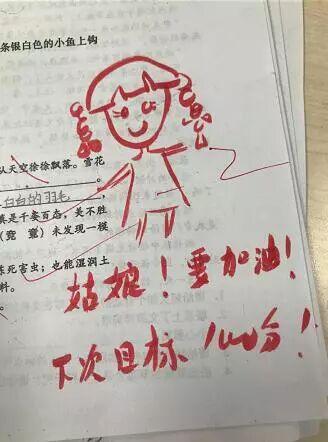 条银白色的小鱼上钩
从天空徐徐飘落。雪花
白白的羽毛,
真是千姿百态,美不胜
(竟 意)未发现一模
冻死害虫;也能湿润土
料。
姑娘!要加油!
下次目标100分!